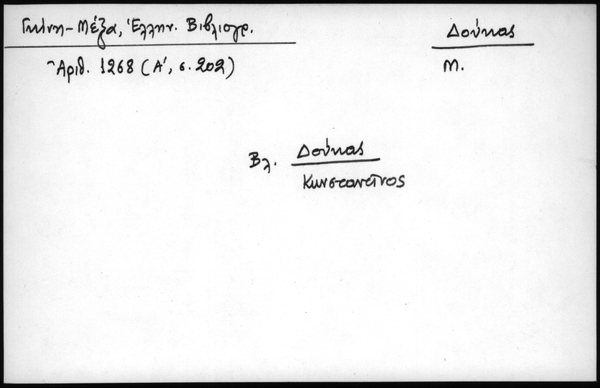 Γκίνη-Μέξα, Ἑλλην. Βιβλιογρ.
Δούκας
Ἀριθ. 1268 (Α', σ. 202)
Μ.
Βλ. Δούκας
Κωνσταντῖνος